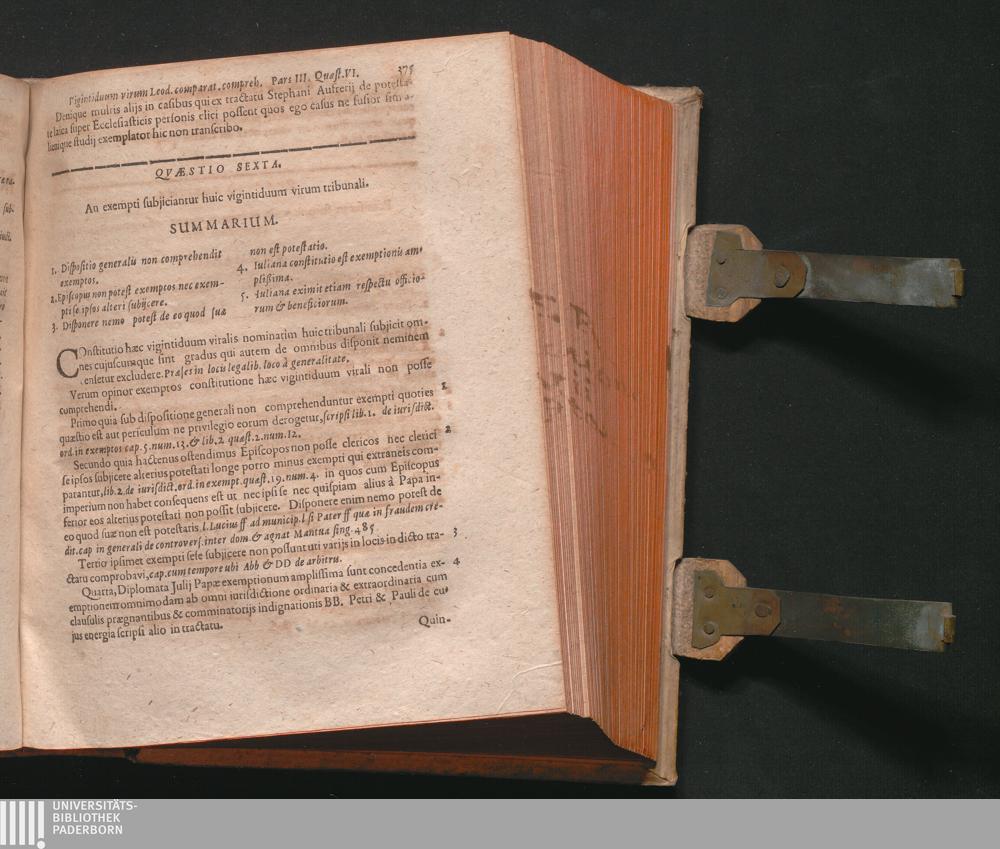 Vigintiduum virum Leod. comparat. compreh. Pars III. Quæst. VI. 375
Denique multis alijs in casibus qui ex tractatu Stephani Aufrerij de potesta-
te laica super Ecclesiasticis personis elici possent quos ego casus ne fusior sim a-
lienique studij exemplator hic non transcribo.
QVÆSTIO SEXTA.
An exempti subjiciantur huic vigintiduum virum tribunali.
SUMMARIUM.
1. Dispositio generalis non comprehendit
exemptos.
2. Episcopus non potest exemptos nec exem-
pti se ipsos alteri subijcere.
3. Disponere nemo potest de eo quod suæ
non est potestatio.
4. Iuliana constitutio est exemptionis am-
plissima.
5. Iuliana eximit etiam respectu officio-
rum & beneficiorum.
COnstitutio hæc vigintiduum viralis nominatim huic tribunali subjicit om-
nes cujuscumque sint gradus qui autem de omnibus disponit neminem
censetur excludere. Præses in locis legalib. loco à generalitate.
Verum opinor exemptos constitutione hæc vigintiduum virali non posse
comprehendi.
Primo quia sub dispositione generali non comprehenduntur exempti quoties 1
quæstio est aut periculum ne privilegio eorum derogetur, scripsi lib. 1. de iurisdict.
ord. in exemptos cap. 5. num. 13. & lib. 2 quæst. 2. num. 12.
Secundo quia hactenus ostendimus Episcopos non posse clericos nec clerici 2
se ipsos subjicere alterius potestati longe porro minus exempti qui extraneis com-
parantur, lib. 2. de iurisdict. ord. in exempt. quæst. 19. num. 4. in quos cum Episcopus
imperium non habet consequens est ut nec ipsi se nec quispiam alius à Papa in-
ferior eos alterius potestati non possit subjicere. Disponere enim nemo potest de
eo quod suæ non est potestatis l. Lucius ff ad municip. l si Pater ff quæ in fraudem cre-
dit. cap in generali de controvers. inter dom. & agnat Mantua sing. 485.
Tertio ipsimet exempti sese subjicere non possunt uti varijs in locis in dicto tra- 3
ctatu comprobavi, cap. cum tempore ubi Abb & DD de arbitru.
Quarta, Diplomata Julij Papæ exemptionum amplissima sunt concedentia ex- 4
emptionem omnimodam ab omni iurisdictione ordinaria & extraordinaria cum
clausulis prægnantibus & comminatorijs indignationis BB. Petri & Pauli de cu-
jus energia scripsi alio in tractatu.
Quin-
UNIVERSITÄTS-
BIBLIOTHEK
PADERBORN